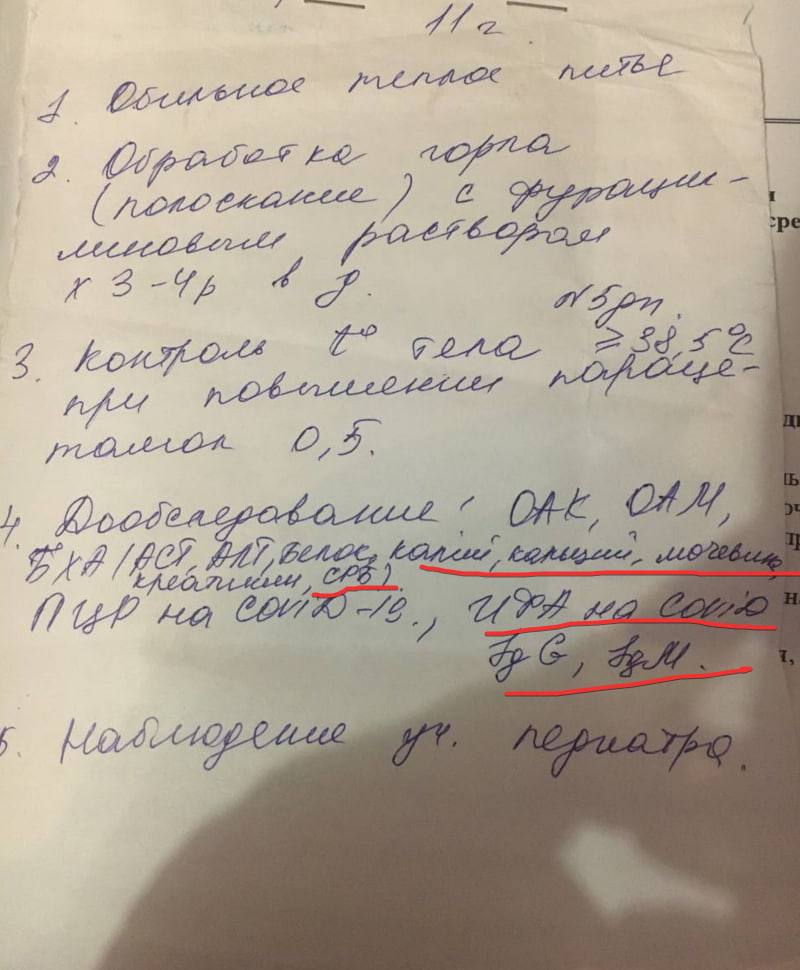 11 г
1. Обильное теплое питье
2. Обработка горла
(полоскание) с фураци-
линовым раствором
х 3-4р в д. N5дн.
3. Контроль t° тела ≥38,5°C
при повышении параце-
тамол 0,5.
4. Дообследование: ОАК, ОАМ,
БХА (АСТ, АЛТ, белок, калий, кальций, мочевина,
креатинин, СРБ)
ПЦР на CoviD-19., ИФА на CoviD
IgG, IgM.
5. Наблюдение уч. педиатра.